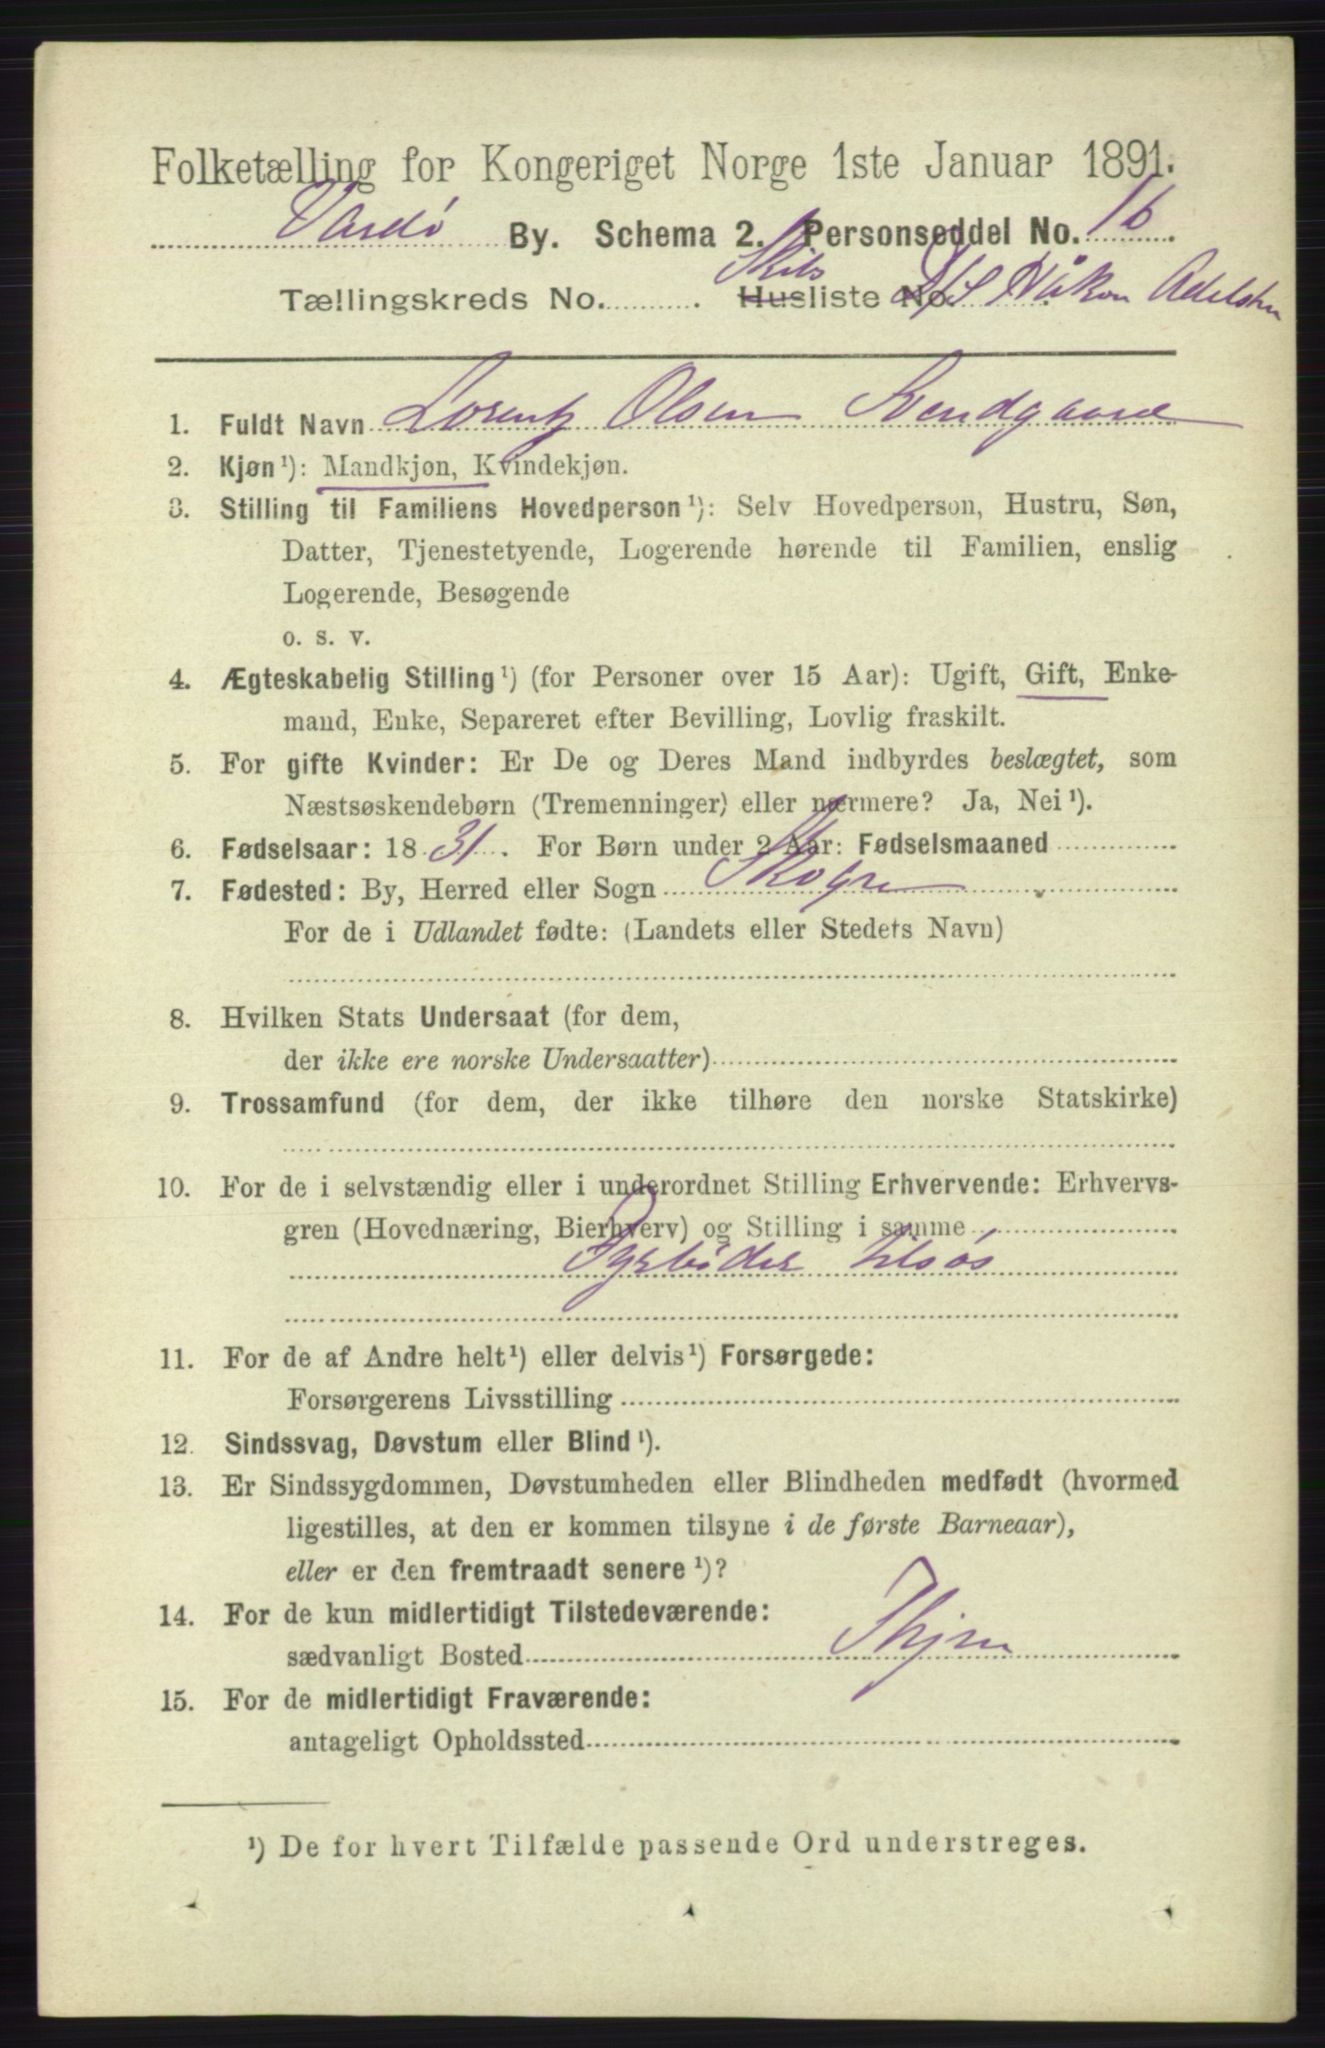 Folketælling for Kongeriget Norge 1ste Januar 1891.
Vardø By. Schema 2. Personseddel No. 16
Tællingskreds No. Skibsliste No. D/S Håkon Adelsten
1. Fuldt Navn Lorentz Olsen Svendgaard
2. Kjøn¹): Mandkjøn, Kvindekjøn.
3. Stilling til Familiens Hovedperson¹): Selv Hovedperson, Hustru, Søn,
Datter, Tjenestetyende, Logerende hørende til Familien, enslig
Logerende, Besøgende
o. s. v.
4. Ægteskabelig Stilling¹) (for Personer over 15 Aar): Ugift, Gift, Enke-
mand, Enke, Separeret efter Bevilling, Lovlig fraskilt.
5. For gifte Kvinder: Er De og Deres Mand indbyrdes beslægtet, som
Næstsøskendebørn (Tremenninger) eller nærmere? Ja, Nei¹).
6. Fødselsaar: 1831. For Børn under 2 Aar: Fødselsmaaned
7. Fødested: By, Herred eller Sogn Skogn
For de i Udlandet fødte: (Landets eller Stedets Navn)
8. Hvilken Stats Undersaat (for dem,
der ikke ere norske Undersaatter)
9. Trossamfund (for dem, der ikke tilhøre den norske Statskirke)
10. For de i selvstændig eller i underordnet Stilling Erhvervende: Erhvervs-
gren (Hovednæring, Bierhverv) og Stilling i samme
Fyrbøder tilsøs
11. For de af Andre helt¹) eller delvis¹) Forsørgede:
Forsørgerens Livsstilling
12. Sindssvag, Døvstum eller Blind¹).
13. Er Sindssygdommen, Døvstumheden eller Blindheden medfødt (hvormed
ligestilles, at den er kommen tilsyne i de første Barneaar),
eller er den fremtraadt senere¹)?
14. For de kun midlertidigt Tilstedeværende:
sædvanligt Bosted
15. For de midlertidigt Fraværende:
antageligt Opholdssted
¹) De for hvert Tilfælde passende Ord understreges.